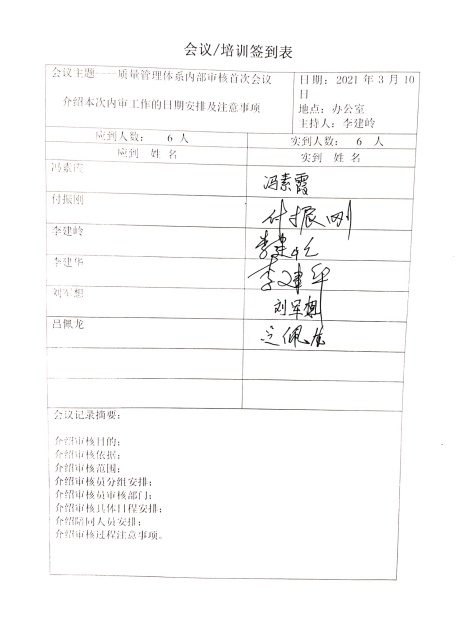 会议/培训签到表
会议主题——质量管理体系内部审核首次会议
介绍本次内审工作的日期安排及注意事项
日期：2021 年 3 月 10
日
地点：办公室
主持人：李建岭
应到人数： 6 人
实到人数： 6 人
应到 姓 名
实到 姓 名
冯素霞
冯素霞
付振刚
付振刚
李建岭
李建岭
李建华
李建华
刘军想
刘军想
吕佩龙
吕佩龙
会议记录摘要：
介绍审核目的；
介绍审核依据；
介绍审核范围；
介绍审核员分组安排；
介绍审核员审核部门；
介绍审核具体日程安排；
介绍陪同人员安排；
介绍审核过程注意事项。